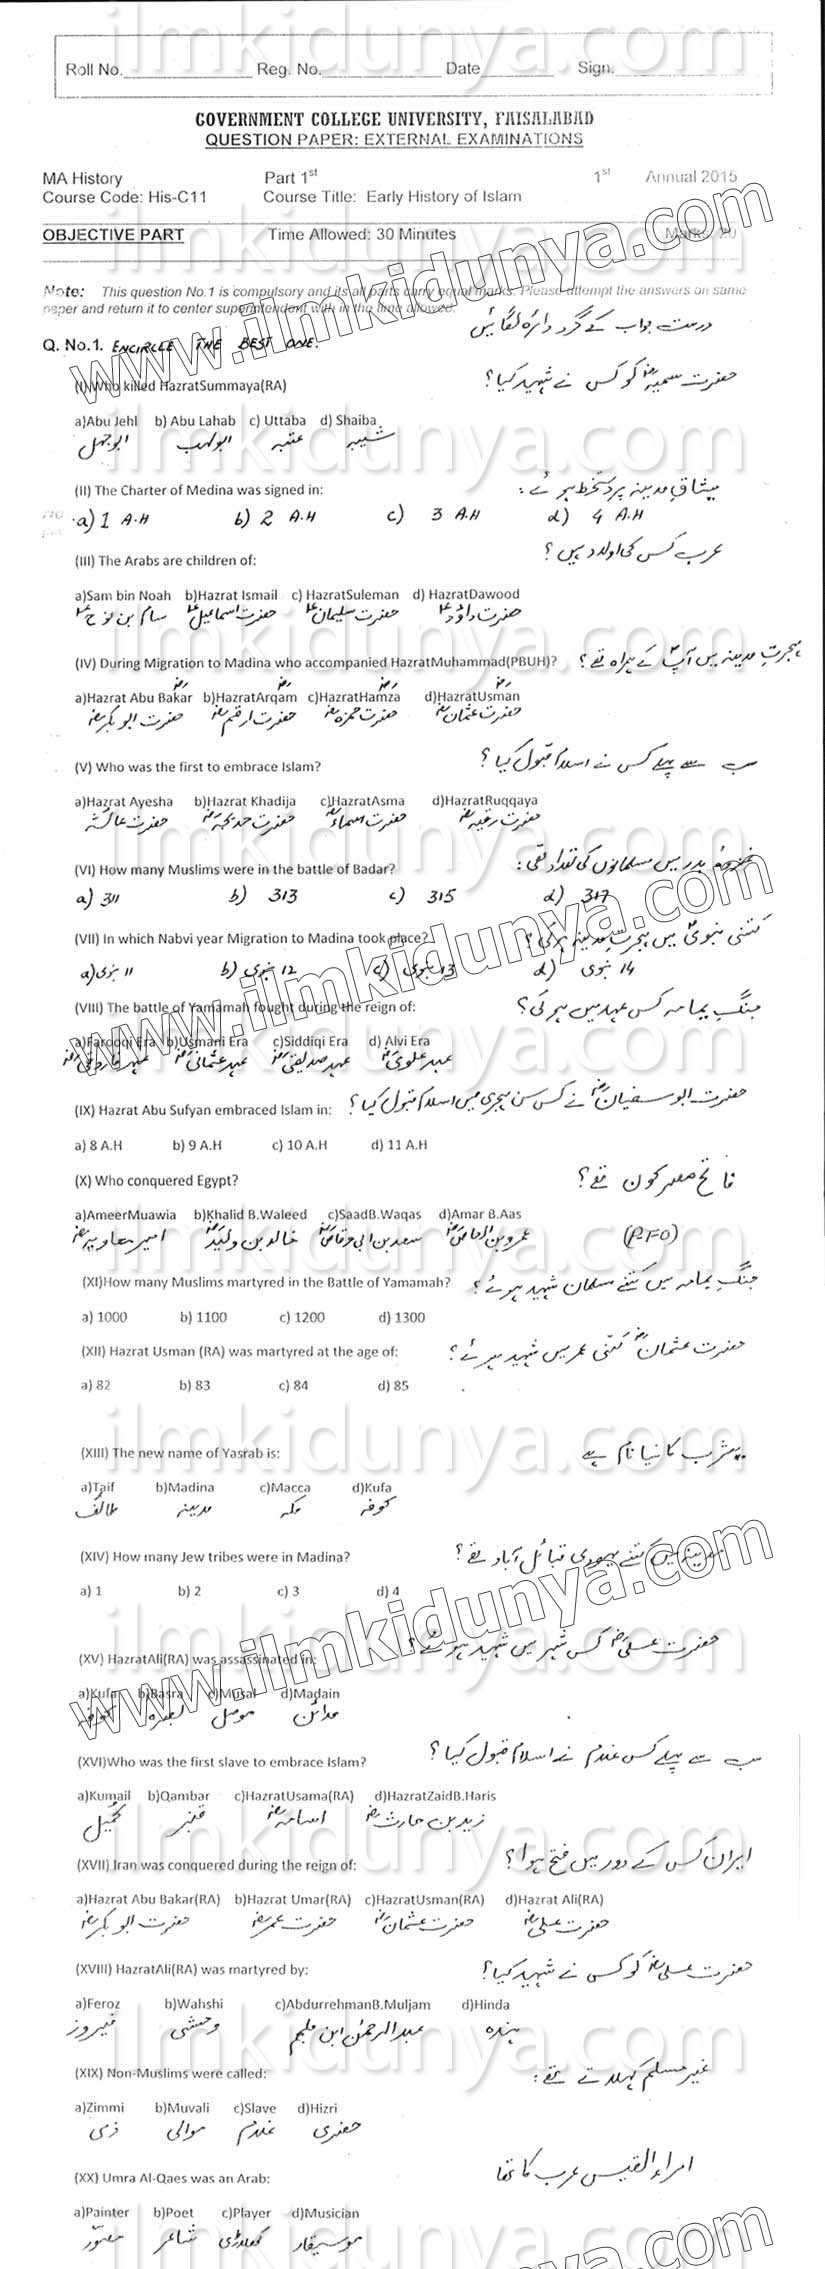 Roll No. Reg. No. Date Sign.
GOVERNMENT COLLEGE UNIVERSITY, FAISALABAD
QUESTION PAPER: EXTERNAL EXAMINATIONS
MA History Part 1st 1st Annual 2015
Course Code: His-C11 Course Title: Early History of Islam
OBJECTIVE PART Time Allowed: 30 Minutes Marks: 20
Note: This question No.1 is compulsory and its all parts carry equal marks. Please attempt the answers on same
paper and return it to center superintendent with in the time allowed.
درست جواب کے گرد دائرہ لگائیں
Q. No.1. ENCIRCLE THE BEST ONE.
(I) Who killed HazratSummaya(RA) حضرت سمیہؓ کو کس نے شہید کیا؟
a)Abu Jehl b) Abu Lahab c) Uttaba d) Shaiba
ابوجہل ابولہب عتبہ شیبہ
(II) The Charter of Medina was signed in: میثاقِ مدینہ پر دستخط ہوئے:
a) 1 A.H b) 2 A.H c) 3 A.H d) 4 A.H
(III) The Arabs are children of: عرب کس کی اولاد ہیں؟
a)Sam bin Noah b)Hazrat Ismail c) HazratSuleman d) HazratDawood
سام بن نوحؑ حضرت اسماعیلؑ حضرت سلیمانؑ حضرت داؤدؑ
(IV) During Migration to Madina who accompanied HazratMuhammad(PBUH)? ہجرتِ مدینہ میں آپؐ کے ہمراہ تھے؟
a)Hazrat Abu Bakar b)HazratArqam c)HazratHamza d)HazratUsman
حضرت ابوبکرؓ حضرت ارقمؓ حضرت حمزہؓ حضرت عثمانؓ
(V) Who was the first to embrace Islam? سب سے پہلے کس نے اسلام قبول کیا؟
a)Hazrat Ayesha b)Hazrat Khadija c)HazratAsma d)HazratRuqqaya
حضرت عائشہ حضرت خدیجہؓ حضرت اسماءؓ حضرت رقیہؓ
(VI) How many Muslims were in the battle of Badar? غزوہ بدر میں مسلمانوں کی تعداد تھی:
a) 311 b) 313 c) 315 d) 317
(VII) In which Nabvi year Migration to Madina took place? کتنی نبویؐ میں ہجرتِ مدینہ ہوئی؟
a) 11 نبوی b) 12 نبوی c) 13 نبوی d) 14 نبوی
(VIII) The battle of Yamamah fought during the reign of: جنگِ یمامہ کس عہد میں ہوئی؟
a)Farooqi Era b)Usmani Era c)Siddiqi Era d) Alvi Era
عہد فاروقیؓ عہد عثمانیؓ عہد صدیقیؓ عہد علویؓ
(IX) Hazrat Abu Sufyan embraced Islam in: حضرت ابو سفیانؓ نے کس سن ہجری میں اسلام قبول کیا؟
a) 8 A.H b) 9 A.H c) 10 A.H d) 11 A.H
(X) Who conquered Egypt? فاتح مصر کون تھے؟
a)AmeerMuawia b)Khalid B.Waleed c)SaadB.Waqas d)Amar B.Aas
امیر معاویہؓ خالد بن ولیدؓ سعد بن ابی وقاصؓ عمرو بن العاصؓ (P.T.O)
(XI)How many Muslims martyred in the Battle of Yamamah? جنگِ یمامہ میں کتنے مسلمان شہید ہوئے؟
a) 1000 b) 1100 c) 1200 d) 1300
(XII) Hazrat Usman (RA) was martyred at the age of: حضرت عثمانؓ کتنی عمر میں شہید ہوئے؟
a) 82 b) 83 c) 84 d) 85
(XIII) The new name of Yasrab is: یثرب کا نیا نام ہے
a)Taif b)Madina c)Macca d)Kufa
طائف مدینہ مکہ کوفہ
(XIV) How many Jew tribes were in Madina? مدینہ میں کتنے یہودی قبائل آباد تھے؟
a) 1 b) 2 c) 3 d) 4
(XV) HazratAli(RA) was assassinated in: حضرت علیؓ کس شہر میں شہید ہوئے؟
a)Kufa b)Basra c)Musal d)Madain
کوفہ بصرہ موصل مدائن
(XVI)Who was the first slave to embrace Islam? سب سے پہلے کس غلام نے اسلام قبول کیا؟
a)Kumail b)Qambar c)HazratUsama(RA) d)HazratZaidB.Haris
کُمیل قنبر اسامہؓ زید بن حارثؓ
(XVII) Iran was conquered during the reign of: ایران کس کے دور میں فتح ہوا؟
a)Hazrat Abu Bakar(RA) b)Hazrat Umar(RA) c)HazratUsman(RA) d)Hazrat Ali(RA)
حضرت ابوبکرؓ حضرت عمرؓ حضرت عثمانؓ حضرت علیؓ
(XVIII) HazratAli(RA) was martyred by: حضرت علیؓ کو کس نے شہید کیا؟
a)Feroz b)Wahshi c)AbdurrehmanB.Muljam d)Hinda
فیروز وحشی عبدالرحمٰن ابن ملجم ہندہ
(XIX) Non-Muslims were called: غیر مسلم کہلاتے تھے:
a)Zimmi b)Muvali c)Slave d)Hizri
ذمی موالی غلام حضری
(XX) Umra Al-Qaes was an Arab: امراء القیس عرب کا تھا
a)Painter b)Poet c)Player d)Musician
مصوّر شاعر کھلاڑی موسیقار
www.ilmkidunya.com